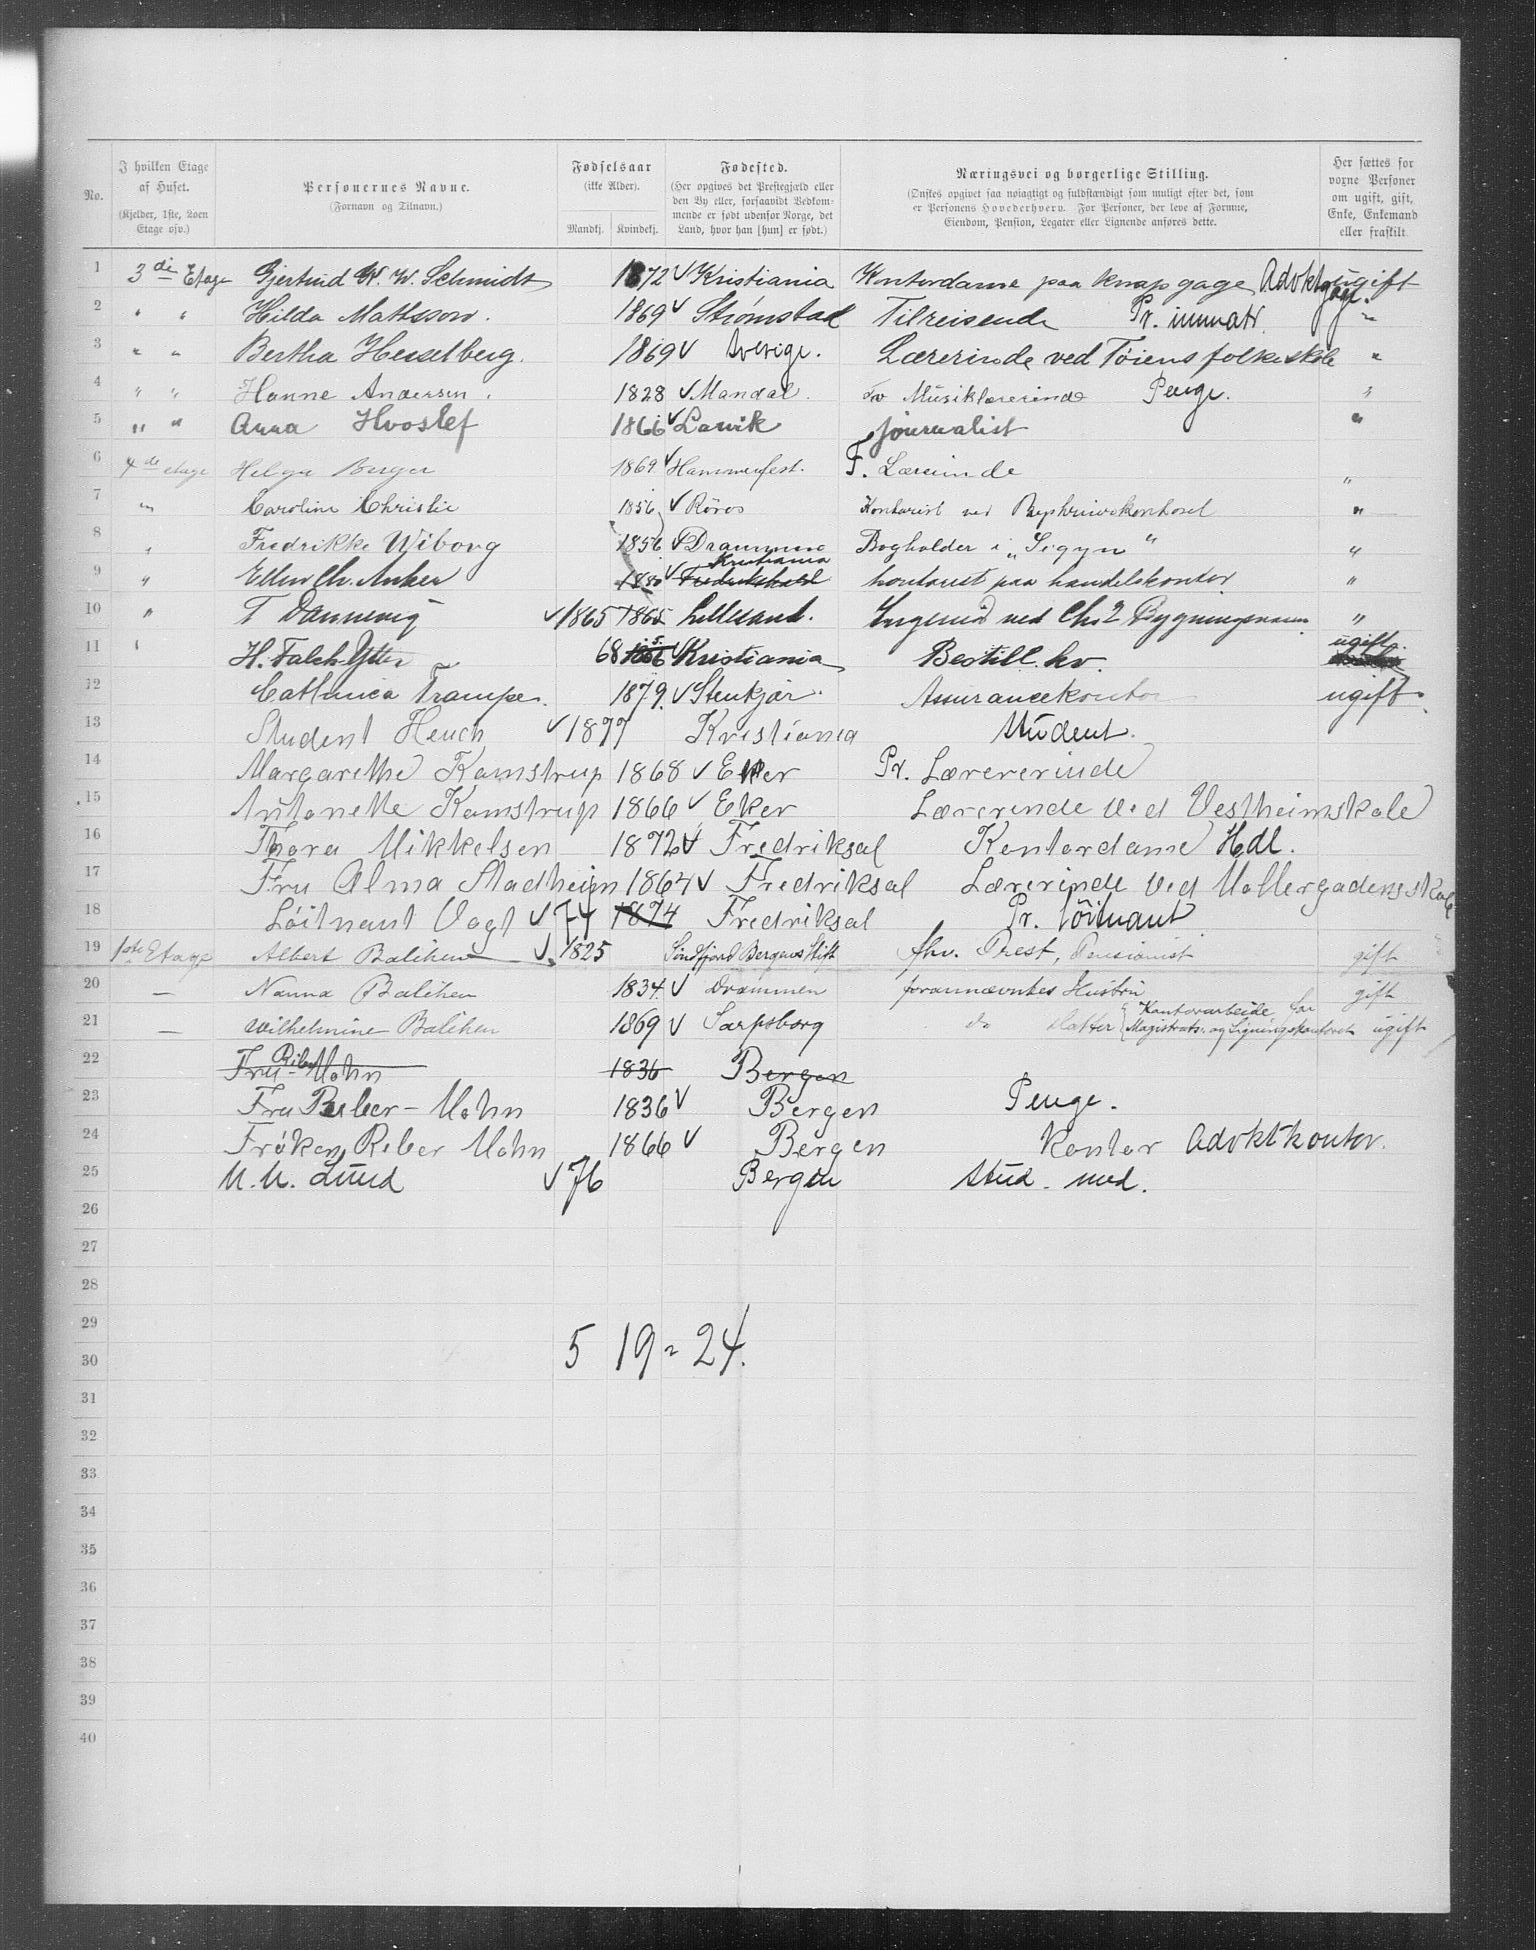 No.
I hvilken Etage af Huset.
(Kjelder, 1ste, 2den Etage osv.)
Personernes Navne.
(Fornavn og Tilnavn.)
Fødselsaar
(ikke Alder).
Mandkj. Kvindekj.
Fødested.
(Her opgives det Prestegjæld eller
den By eller, forsaavidt Vedkom-
mende er født udenfor Norge, det
Land, hvor han [hun] er født.)
Næringsvei og borgerlige Stilling.
(Ønskes opgivet saa nøiagtigt og fuldstændigt som muligt efter det, som
er Personens Hovederhverv. For Personer, der leve af Formue,
Eiendom, Pension, Legater eller Lignende anføres dette.
Her sættes for
voxne Personer
om ugift, gift,
Enke, Enkemand
eller fraskilt.
1 3die Etage Gjertrud W. W. Schmidt 1872 Kristiania Kontordame paa knap gage Advktgage ugift
2 " " Hilda Mattsson. 1869 Strømstad Tilreisende Pr. immatr. "
3 " " Bertha Hesselberg. 1869 Sverige. Lærerinde ved Tøiens folkeskole "
4 " " Hanne Andersen. 1828 Mandal. Musiklærerinde Penge. "
5 " " Anna Hvoslef 1866 Lauvik journalist "
6 4de etage Helga Berger 1869 Hammerfest. F. Lærerinde "
7 " Caroline Christie 1856 Röros Kontorist ved "
8 " Fredrikke Wiborg 1856 Drammen Bogholder i „Sigyn" "
9 " Ellen Ch. Anker 1880 Fredrikshald Kristiania kontorist paa handelskontor "
10 " T Dannevig 1865 1865 Lillesand. Ingeniør ved Chra Bygningsvæsen "
11 " H. Falch Ytter 68 1866 Kristiania Bestill. hv. ugift
12 Cathinca Trampe. 1879. Stenkjær. Assurancekontor ugift.
13 Student Heuch 1877 Kristiania Student.
14 Margarethe Komstrup 1868 Eker Pr. Lærererinde
15 Antonette Komstrup 1866 Eker Lærerinde ved Vestheimskole
16 Thora Mikkelsen 1872 Fredriksal Kontordame Hdl.
17 Fru Alma Stadheim 1864 Fredriksal Lærerinde ved Møllergadens skole
18 Løitnant Vogt 74 1874 Fredriksal Pr. løitnant
19 1ste Etage Albert Balchen 1825 Söndfjord Bergens Stift fhv. Prest, Pensionist gift
20 — Nanna Balchen 1834. Drammen forannævntes Hustru gift
21 — Wilhelmine Balchen 1869 Sarpsborg do datter { Kontorarbeide for Magistrats- og Ligningskontoret ugift
22 Fru Riber Mohn 1836 Bergen
23 Fru Riber - Mohn 1836 Bergen Penge.
24 Frøken Riber Mohn 1866 Bergen Kontor Advktkontor.
25 M. M. Lund 76 Bergen stud. med.
26
27
28
29
5 19 = 24.
30
31
32
33
34
35
36
37
38
39
40